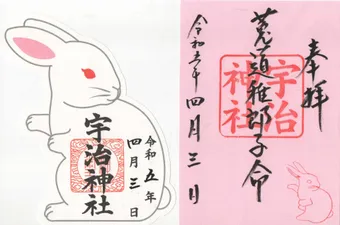 宇治神社
令和五年
四月三日
奉拝
菟道稚郎子命
宇治
神社
令和五年四月三日